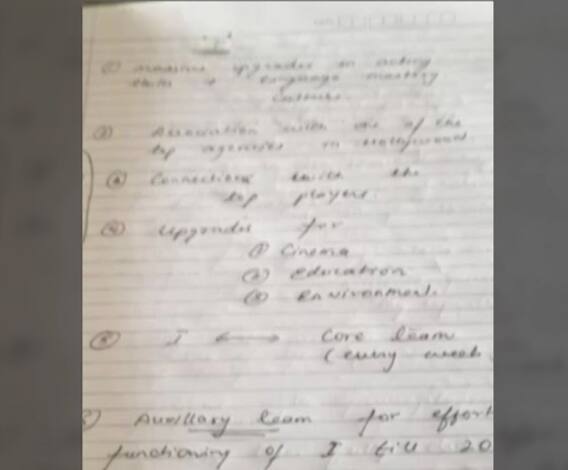 ① massive upgrades in acting
skills + language mastery
culture.
② Association with one of the
top agencies in Hollywood.
③ Connections with the
top players.
④ Upgrades for
① Cinema
② education
③ environment.
⑤ I ⟷ Core team
(every week
Auxillary team for effort
functioning of I till 20